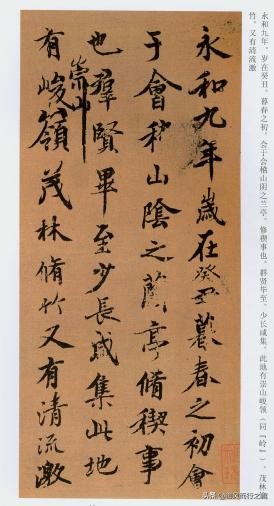 永和九年，岁在癸丑。暮春之初，会于会稽山阴之兰亭。修禊事也。群贤毕至，少长咸集。此地有崇山峻领（同『岭』），茂林
竹。又有清流激
永和九年歲在癸丑暮春之初會
于會稽山陰之蘭亭脩稧事
也群賢畢至少長咸集此地
有崇山峻領茂林脩竹又有清流激